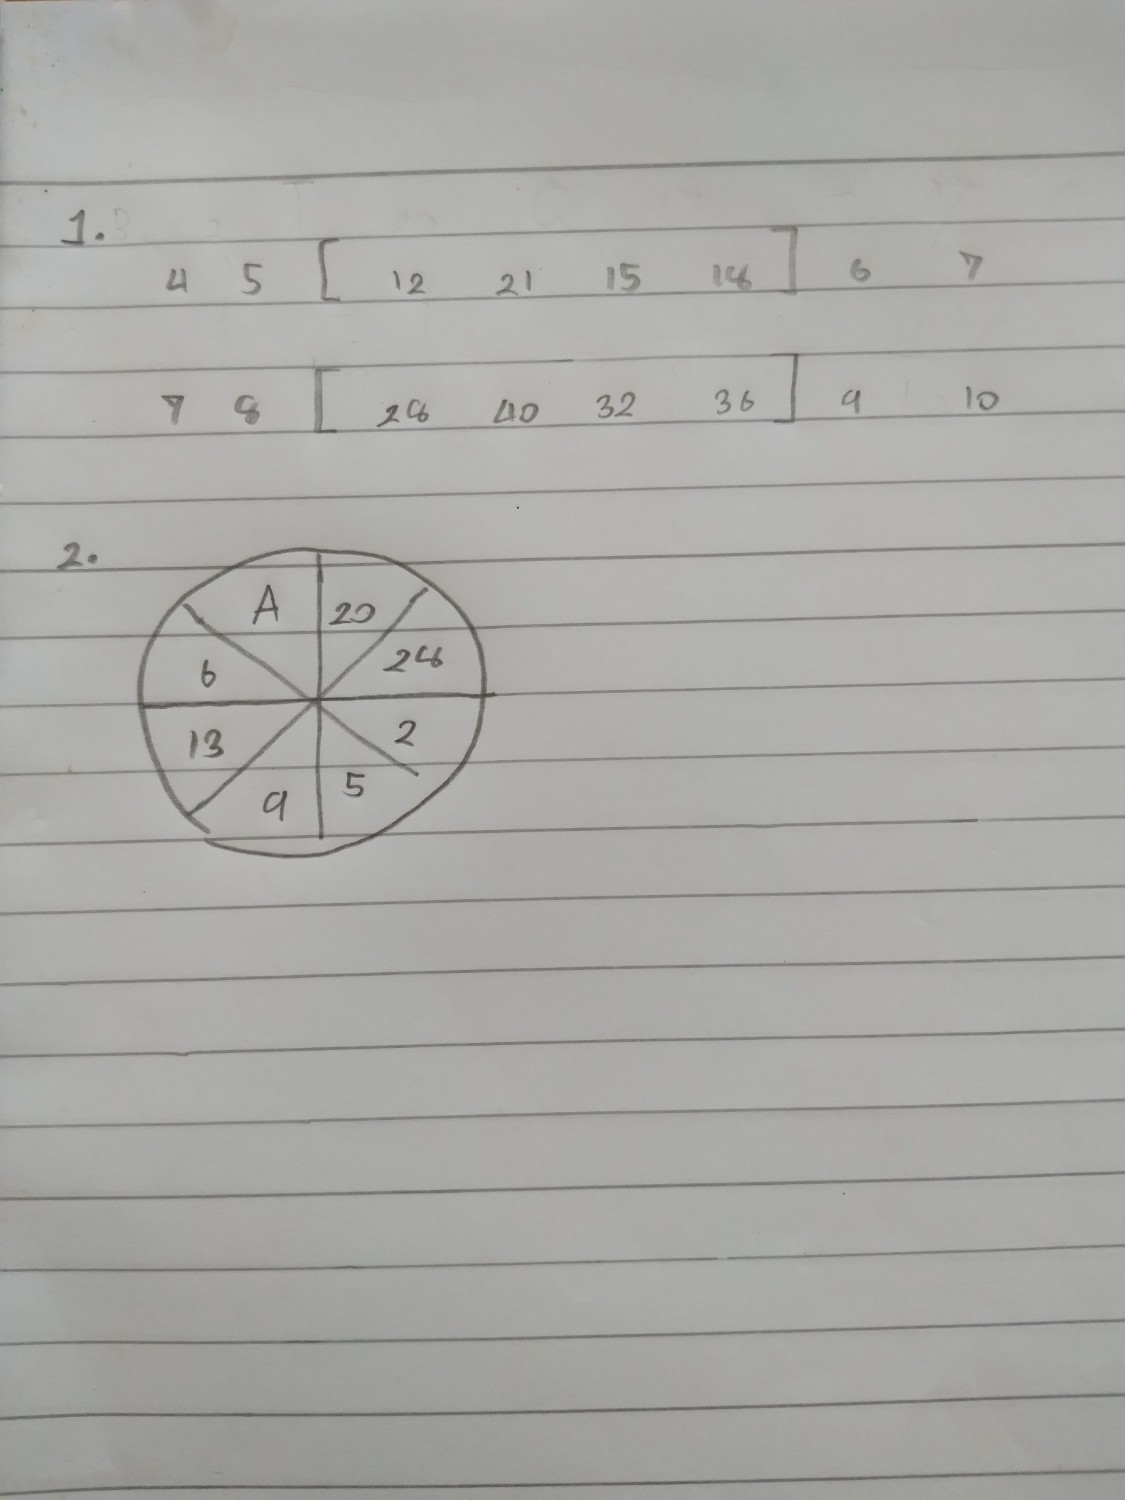 1.
4 5 [ 12 21 15 18 ] 6 7
7 8 [ 28 40 32 36 ] 9 10
2.
A 20
6 28
13 2
9 5